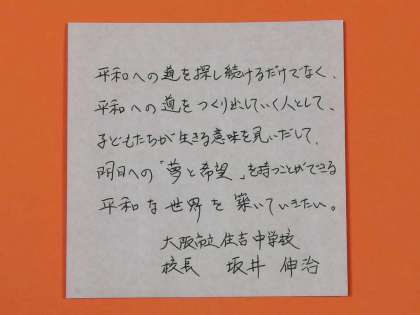 平和への道を探し続けるだけでなく、
平和への道をつくり出していく人として、
子どもたちが生きる意味を見いだして、
明日への「夢と希望」を持つことができる
平和な世界を築いていきたい。
大阪市立住吉中学校
校長 坂井 伸治